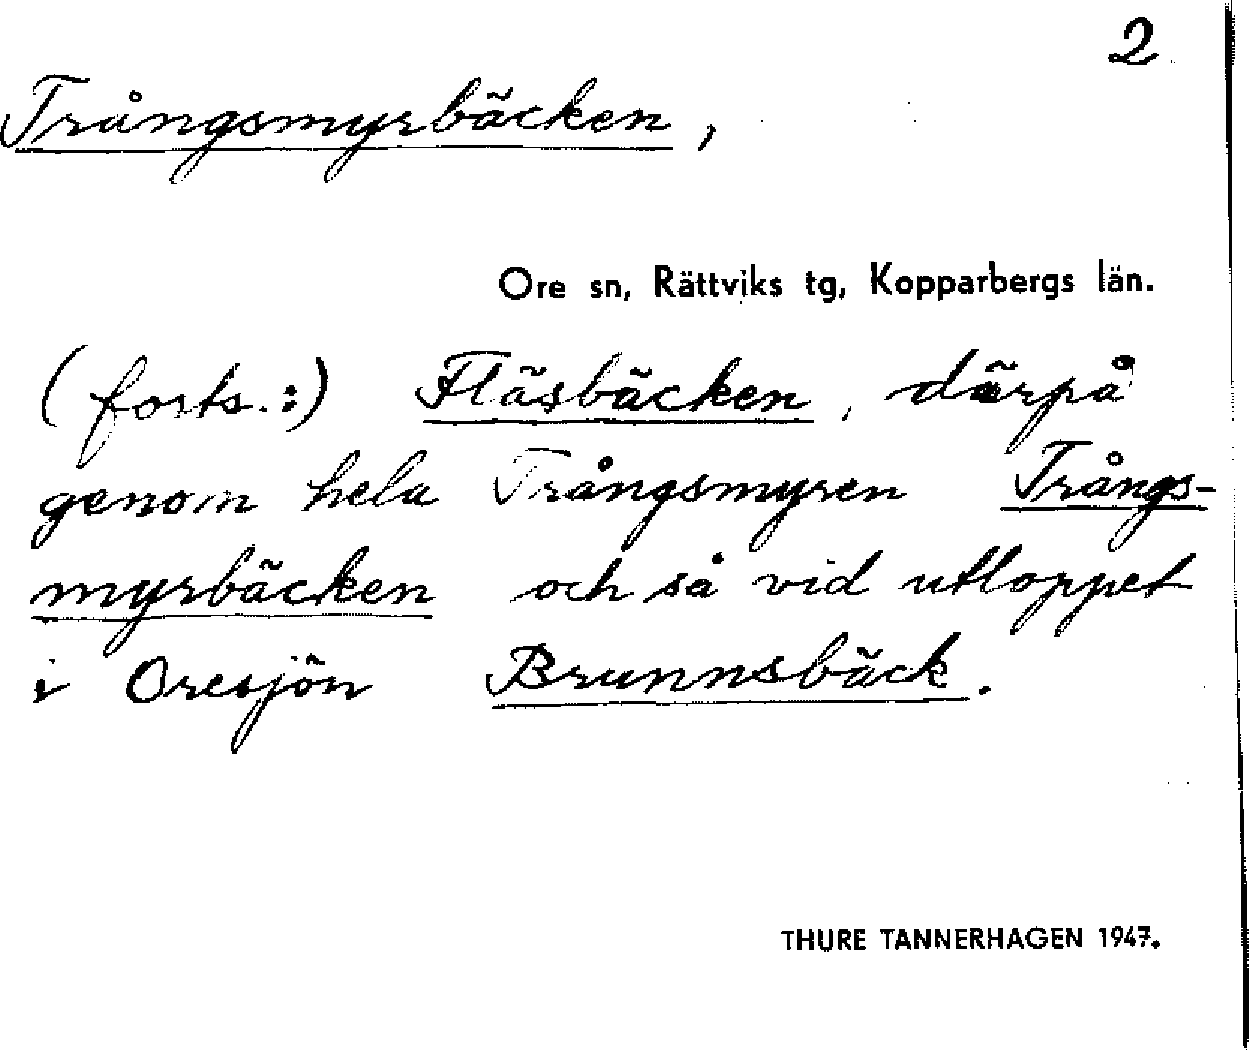 2
Trångsmyrbäcken,
Ore sn, Rättviks tg, Kopparbergs län.
(forts.:) Fläsbäcken, därpå
genom hela Trångsmyren Trångs-
myrbäcken och så vid utloppet
i Oresjön Brunnsbäck.
THURE TANNERHAGEN 1947.